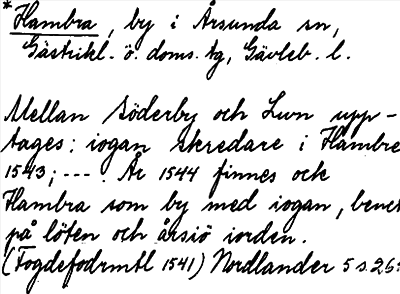 * Hambra, by i Årsunda sn,
Gästrikl. ö. doms. tg, Gävleb. l.
Mellan Söderby och Lwn upp-
tages: iogan skredare i Hambre
1543; --- . År 1544 finnes ock
Hambra som by med iogan, benct
på löten och årsiö iorden.
(Fogdefodrmtl 1541) Nordlander 5 s. 26